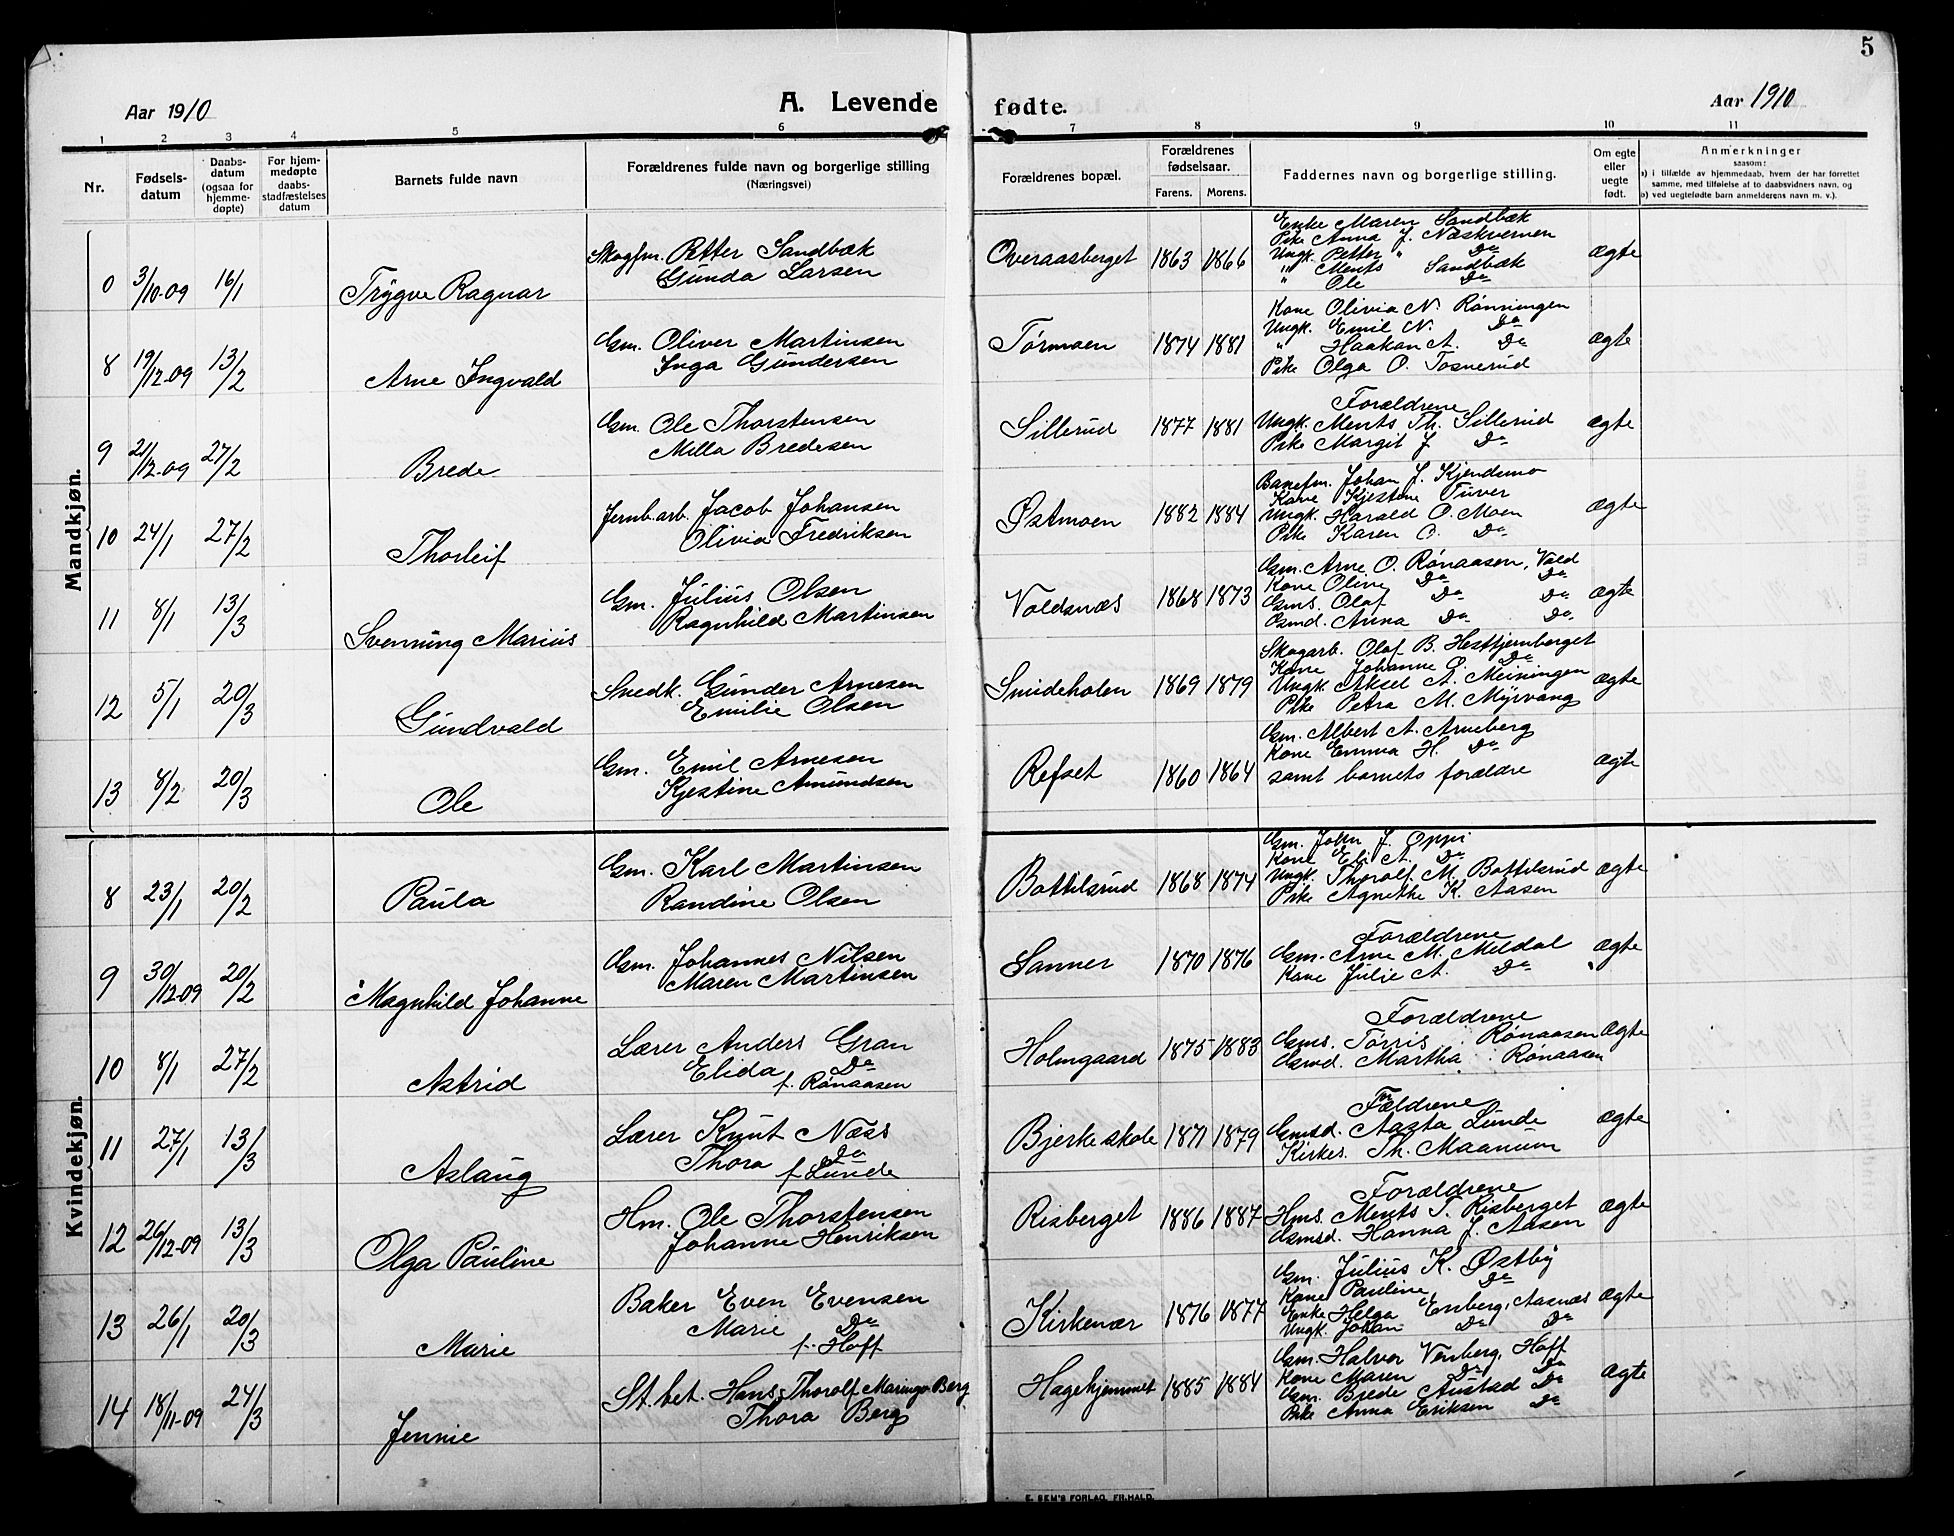 5
Aar 1910
A. Levende fødte.
Aar 1910
1 2 3 4 5 6 7 8 9 10 11
Nr.
Fødsels-
datum
Daabs-
datum
(ogsaa for
hjemme-
døpte)
For hjem-
medøpte
daabs-
stadfæstelses
datum
Barnets fulde navn
Forældrenes fulde navn og borgerlige stilling
(Næringsvei)
Forældrenes bopæl.
Forældrenes
fødselsaar.
Farens. Morens.
Faddernes navn og borgerlige stilling.
Om egte
eller
uegte
født.
Anmerkninger
saasom:
a) i tilfælde av hjemmedaab, hvem der har forrettet
samme, med tilføielse af to daabsvidners navn, og
b) ved uegtefødte barn anmelderens navn m. v.).
Mandkjøn.
0 3/10-09 16/1 Trygve Ragnar
Skogfm. Petter Sandbæk
Gunda Larsen
Overaasberget 1863 1866
Enke Maren Sandbæk
Pike Anna J. Næskvernen
Ungk. Petter " Do
" Ments Sandbæk
" Ole Do
ægte
8 19/12-09 13/2 Arne Ingvald
Gm. Oliver Martinsen
Inga Gundersen
Tørmoen 1874 1881
Kone Olivia N. Rønningen
Ungk. Emil N. Do
" Haakon A. Do
Pike Olga O. Tosnerud
ægte
9 21/12-09 27/2 Brede
Gm. Ole Thorstensen
Milla Bredesen
Sillerud 1877 1881
Forældrene
Ungk. Ments Th. Sillerud
Pike Margit J. Do
ægte
10 24/1 27/2 Thorleif
Jernb.arb. Jacob Johansen
Olivia Fredriksen
Østmoen 1882 1884
Banefm. Johan J. Kjendsmo
Kone Kjestine Tuver
Ungk. Harald O. Moen
Pike Karen O. Do
ægte
11 8/1 13/3 Svenning Marius
Gm. Julius Olsen
Ragnhild Martinsen
Voldsnæs 1868 1873
Gm. Arne O. Rønaasen, Vold
Kone Oline Do Do
Gms. Olaf Do Do
Gmd. Anna Do Do
ægte
12 5/1 20/3 Gundvald
Snedk. Gunder Arnesen
Emilie Olsen
Smideholen 1869 1879
Skogarb. Olaf B. Hesttjernberget
Kone Johanne O. Do
Ungk. Aksel A. Meiningen
Pike Petra M. Myrvang
ægte
13 8/2 20/3 Ole
Gm. Emil Arnesen
Kjestine Amundsen
Refset 1860 1864
Gm. Albert A. Arneberg
Kone Emma H. Do
samt barnets forældre
ægte
Kvindekjøn.
8 23/1 20/2 Paula
Gm. Karl Martinsen
Randine Olsen
Bottilsrud 1868 1874
Gm. John J. Oppi
Kone Eli A. Do
Ungk. Thorolf M. Bottilsrud
Pike Agnethe K. Aasen
ægte
9 30/12-09 20/2 Magnhild Johanne
Gm. Johannes Nilsen
Maren Martinsen
Sanner 1870 1876
Forældrene
Gm. Arne M. Meldal
Kone Julie A. Do
ægte
10 8/1 27/2 Astrid
Lærer Anders Gran
Elida Do
f. Rønaasen
Holmgaard 1875 1883
Forældrene
Gms. Tørris Rønaasen
Gmd. Martha Rønaasen
ægte
11 27/1 13/3 Aslaug
Lærer Knut Næss
Thora Do
f. Lunde
Bjerke skole 1871 1879
Forældrene
Gmsd. Aasta Lunde
Kirkes. Th. Maanum
ægte
12 26/12-09 13/3 Olga Pauline
Hm. Ole Thorstensen
Johanne Henriksen
Risberget 1886 1887
Forældrene
Hms. Ments T. Risberget
Gmsd. Hanna J. Aasen
ægte
13 26/1 20/3 Marie
Baker Even Evensen
Marie Do
f. Hoff
Kirkenær 1876 1877
Gm. Julius K. Østby
Kone Pauline Do
Enke Helga Enberg, Aasnæs
Ungk. Johan Do Do
ægte
14 18/11-09 24/3 Jennie
St.bet. Hans Thorolf Maringo Berg
Thora Berg
Hagehjemmet 1885 1884
Gm. Halvor Venberg, Hoff
Kone Maren Do Do
Gm. Brede Austad Do
Pike Anna Eriksen Do
ægte
E. SEM'S FORLAG, FR.HALD.